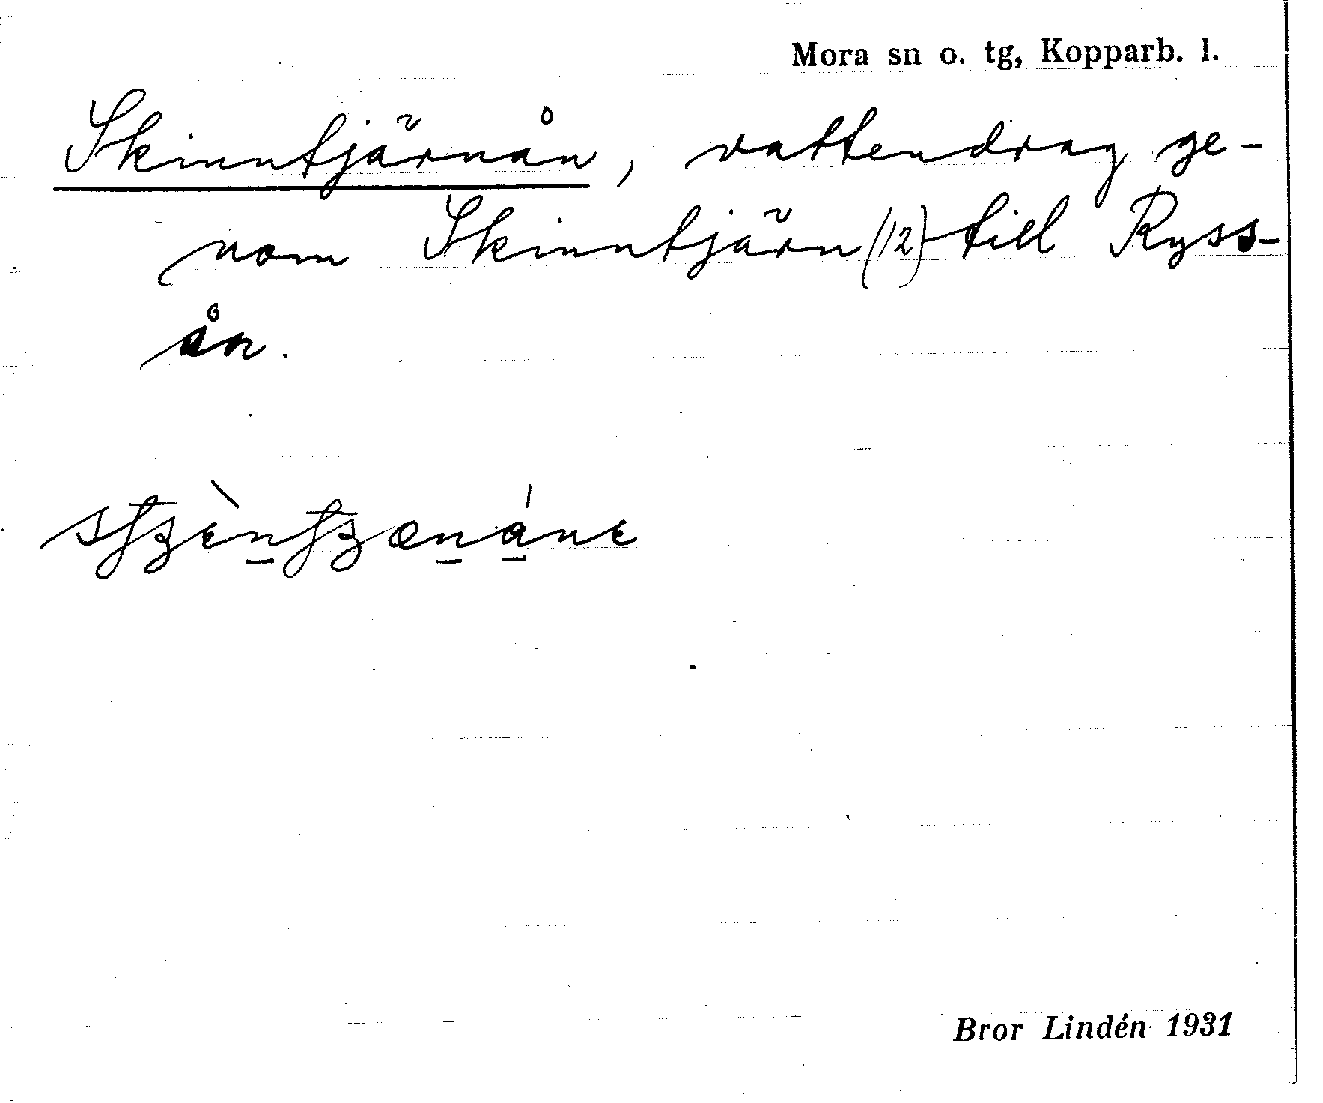 Mora sn o. tg, Kopparb. l.
Skinntjärnån, vattendrag ge-
nom Skinntjärn (12) till Ryss-
ån.
Bror Lindén 1931